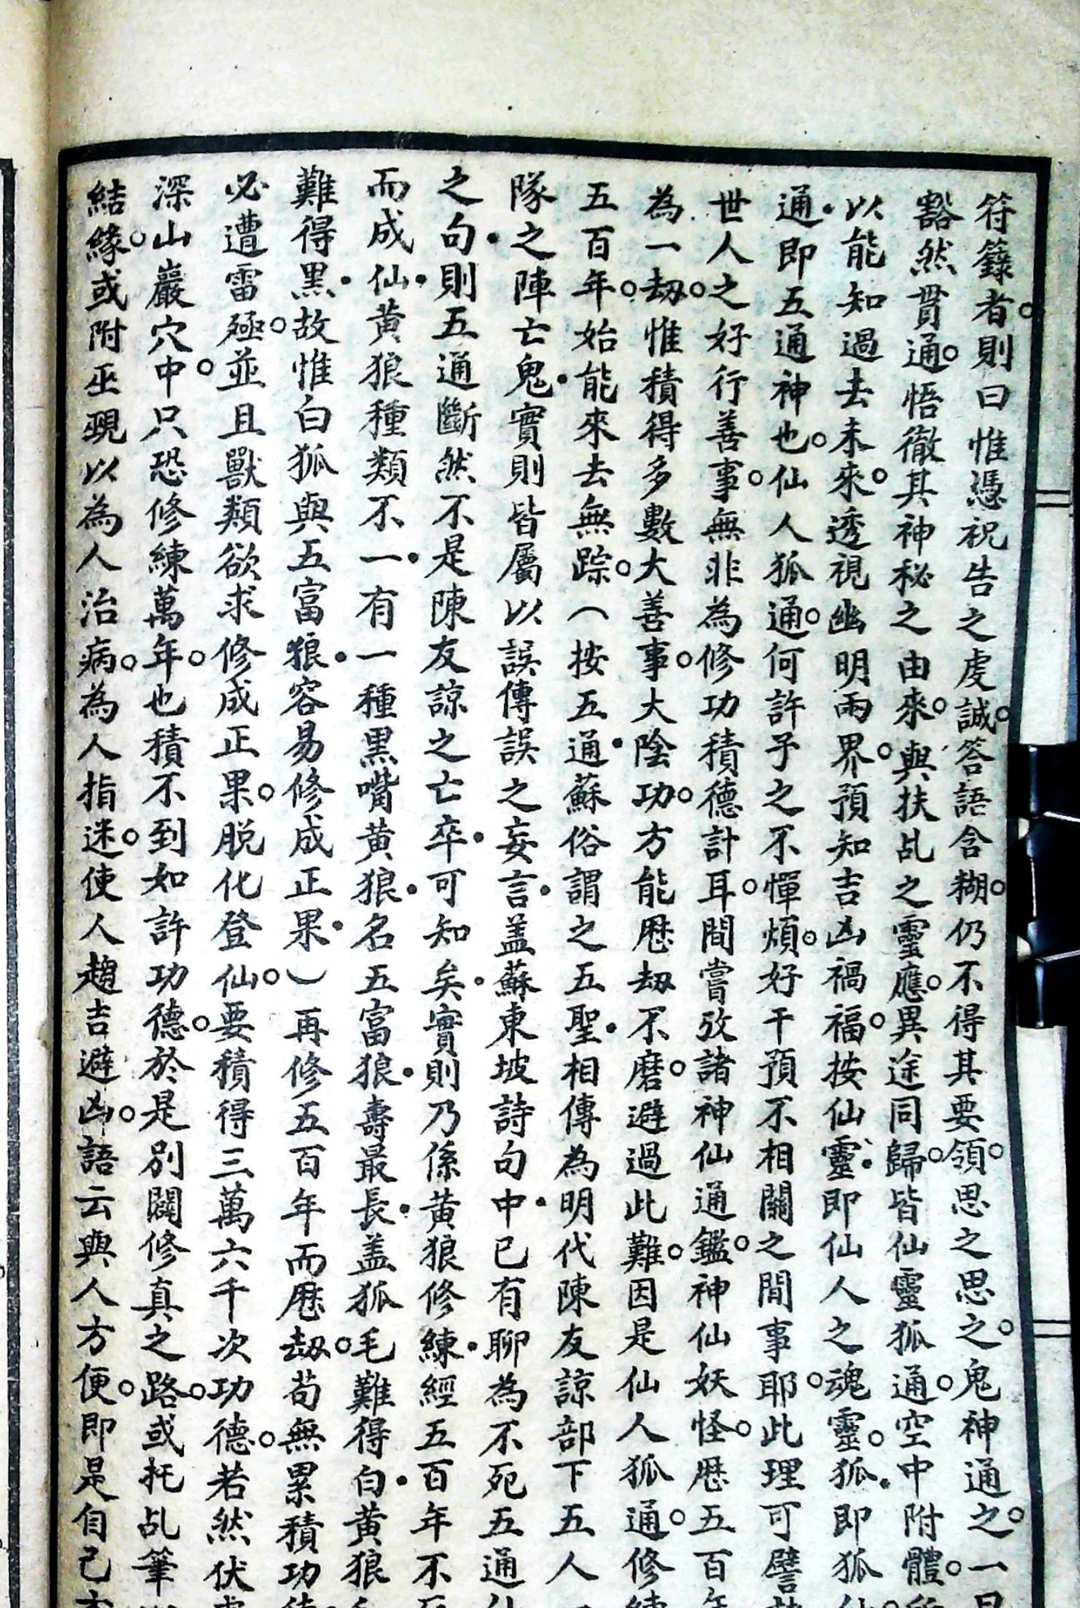 符籙者。則曰惟憑祝告之虔誠。答語含糊。仍不得其要領。思之思之。鬼神通之。一旦
豁然貫通。悟徹其神秘之由來。與扶乩之靈應。異途同歸。皆仙靈狐通。空中附體。所
以能知過去未來。透視幽明兩界。預知吉凶禍福。按仙靈。即仙人之魂靈。狐。即狐仙
通。即五通神也。仙人狐通。何許子之不憚煩。好干預不相關之間事耶。此理可譬
世人之好行善事。無非為修功積德計耳。間嘗攷諸神仙通鑑。神仙妖怪。歷五百年
為一劫。惟積得多數大善事。大陰功。方能歷劫不磨。避過此難。因是仙人狐通。修練
五百年。始能來去無踪。（按五通。蘇俗謂之五聖。相傳為明代陳友諒部下五人一
隊之陣亡鬼。實則皆屬以誤傳誤之妄言。蓋蘇東坡詩句中。已有聊為不死五通仙
之句。則五通斷然不是陳友諒之亡卒。可知矣。實則乃係黃狼修練。經五百年不死
而成仙。黃狼種類不一。有一種黑嘴黃狼。名五富狼。壽最長。蓋狐毛難得白。黃狼毛
難得黑。故惟白狐與五富狼。容易修成正果。）再修五百年而歷劫。苟無累積功德。
必遭雷殛。並且獸類欲求修成正果。脫化登仙。要積得三萬六千次功德。若然伏處
深山巖穴中。只恐修練萬年。也積不到如許功德。於是別闢修真之路。或托乩筆
結緣。或附巫覡以為人治病。為人指迷。使人趨吉避凶。語云與人方便。即是自己方